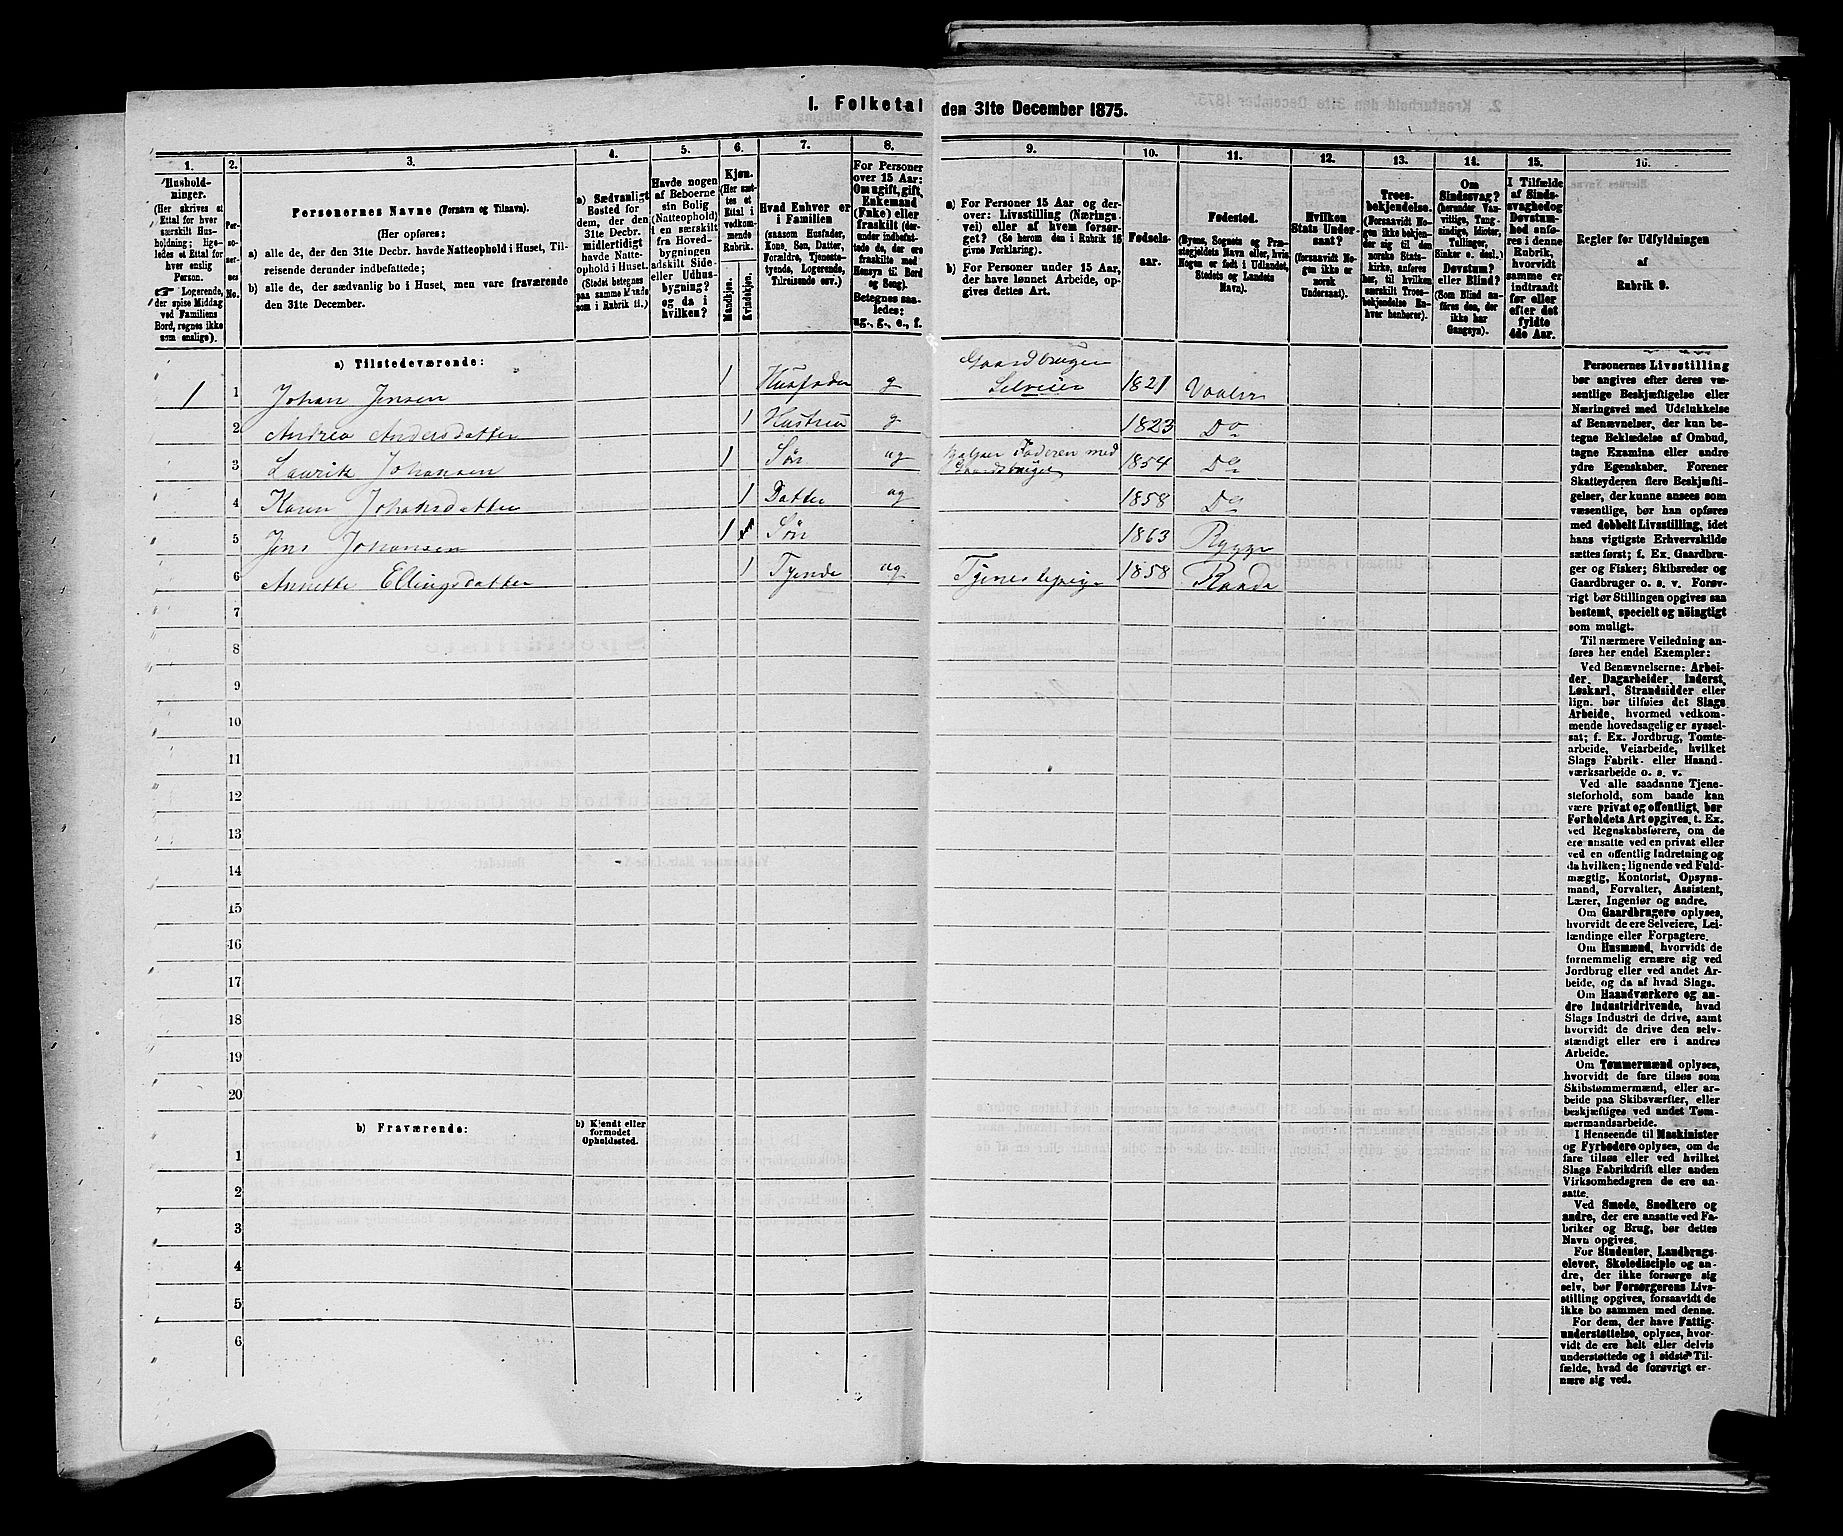 I. Folketal den 31te December 1875.
1. 2. 3. 4. 5. 6. 7. 8. 9. 10. 11. 12. 13. 14. 15. 16.
Husholdninger.
(Her skrives et
Ettal for hver
særskilt Husholdning;
ligeledes et Ettal for
hver enslig
Person.
Logerende,
der spise Middag
ved Familiens
Bord, regnes ikke
som enslige).
Personernes No.
Personernes Navne (Fornavn og Tilnavn).
(Her opføres:
a) alle de, der den 31te Decbr. havde Natteophold i Huset, Tilreisende derunder indbefattede;
b) alle de, der sædvanlig bo i Huset, men vare fraværende
den 31te December.
a) Sædvanligt
Bosted for
dem, der den
31te Decbr.
midlertidigt
havde Natteophold i Huset.
(Stedet betegnes
paa samme Maade
som i Rubrik 11.)
Havde nogen
af Beboerne
sin Bolig
(Natteophold)
i en særskilt
fra Hovedbygningen
adskilt Side- eller Udhusbygning?
og da i
hvilken?
Kjøn.
(Her sættes et
Ettal i
vedkommende
Rubrik.
Mandkjøn.
Kvindekjøn.
Hvad Enhver er
i Familien
(saasom Husfader,
Kone, Søn, Datter,
Forældre, Tjenestetyende, Logerende,
Tilreisende osv.)
For Personer
over 15 Aar:
Om ugift, gift,
Enkemand
(Enke) eller
fraskilt (derunder indbefattede de, der ere
fraskilte med
Hensyn til Bord
og Seng).
Betegnes saaledes:
ug., g., e., f.
a) For Personer 15 Aar og derover: Livsstilling (Næringsvei) eller af hvem forsørget? (Se herom den i Rubrik 16
givne Forklaring).
b) For Personer under 15 Aar,
der have lønnet Arbeide, opgives dettes Art.
Fødselsaar.
Fødested.
(Byens, Sognets og Præstegjeldets Navn eller, hvis
Nogen er født i Udlandet,
Stedets og Landets
Navn).
Hvilken
Stats Undersaat?
(forsaavidt Nogen ikke er
norsk
Undersaat).
Troesbekjendelse.
(Forsaavidt Nogen ikke bekjender sig til den
norske Statskirke, anføres
her, til hvilken
særskilt Troesbekjendelse Enhver henhører).
Om
Sindssvag?
(herunder Vanvittige, Tungsindige, Idioter,
Tullinger,
Sinker o. desl.)
Døvstum?
eller Blind?
(Som Blind anføres den, der
ikke har
Gangsyn).
I Tilfælde
af Sindssvaghed og
Døvstumhed anføres i denne
Rubrik,
hvorvidt
samme er
indtraadt
før eller
efter det
fyldte
4de Aar.
Regler for Udfyldningen
af
Rubrik 9.
a) Tilstedeværende:
1 1 Johan Jensen 1 Husfader g Gaardbruger Selveier 1821 Vaaler
2 Andrea Andersdatter 1 Hustru g 1823 Do
3 Laurik Johansen 1 Søn ug hjælper Faderen med Gaardsbruget 1854 Do
4 Karen Johansdatter 1 Datter ug 1858 Do
5 Jens Johansen 1 Søn 1863 Rygge
6 Annette Ellingsdatter 1 Tyende ug Tjenestepige 1858 Raade
7
8
9
10
11
12
13
14
15
16
17
18
19
20
b) Fraværende:
b) Kjendt eller
formodet
Opholdssted.
1
2
3
4
5
6
Personernes Livsstilling
bør angives efter deres væsentlige Beskjæftigelse eller
Næringsvei med Udelukkelse
af Benævnelser, der kun betegne Beklædelse af Ombud,
tagne Examina eller andre
ydre Egenskaber. Forener
Skatteyderen flere Beskjæftigelser, der kunne ansees som
væsentlige, bør han opføres
med dobbelt Livsstilling, idet
hans vigtigste Erhvervskilde
sættes først; f. Ex. Gaardbruger og Fisker; Skibsreder og
Gaardbruger o. s. v. Forøvrigt bør Stillingen opgives saa
bestemt, specielt og nöiagtigt
som muligt.
Til nærmere Veiledning anføres her endel Exempler:
Ved Benævnelserne: Arbeider, Dagarbeider, Inderst,
Løskarl, Strandsidder eller
lign. bør tilføies det Slags
Arbeide, hvormed vedkommende hovedsagelig er sysselsat; f. Ex. Jordbrug, Tomtearbeide, Veiarbeide, hvilket
Slags Fabrik- eller Haandværksarbeide o. s. v.
Ved alle saadanne Tjenesteforhold, som baade kan
være privat og offentligt, bør
Forholdets Art opgives, t. Ex.
ved Regnskabsførere, om de
ere ansatte ved en privat eller
ved en offentlig Indretning og
da hvilken; lignende ved Fuldmægtig, Kontorist, Opsynsmand, Forvalter, Assistent,
Lærer, Ingeniør og andre.
Om Gaardbrugere oplyses,
hvorvidt de ere Selveiere, Leilændinge eller Forpagtere.
Om Husmænd, hvorvidt de
fornemmelig ernære sig ved
Jordbrug eller ved andet Arbeide, og da af hvad Slags.
Om Haandværkere og andre Industridrivende, hvad
Slags Industri de drive, samt
hvorvidt de drive den selvstændigt eller ere i andres
Arbeide.
Om Tømmermænd oplyses,
hvorvidt de fare tilsøs som
Skibstømmermænd, eller arbeide paa Skibsværfter, eller
beskjæftiges ved andet Tømmermandsarbeide.
I Henseende til Maskinister
og Fyrbødere oplyses, om de
fare tilsøs eller ved hvilket
Slags Fabrikdrift eller anden
Virksomhedsgren de ere ansatte.
Ved Smede, Snedkere og
andre, der ere ansatte ved Fabriker og Brug, bør dettes
Navn opgives.
For Studenter, Landbrugselever, Skoledisciple og andre, der ikke forsørge sig
selv, bør Forsørgerens Livsstilling opgives, forsaavidt de
ikke bo sammen med denne.
For dem, der have Fattigunderstøttelse, oplyses, hvorvidt de ere helt eller delvis
understøttede og i sidste Tilfælde, hvad de forøvrigt ernære sig ved.